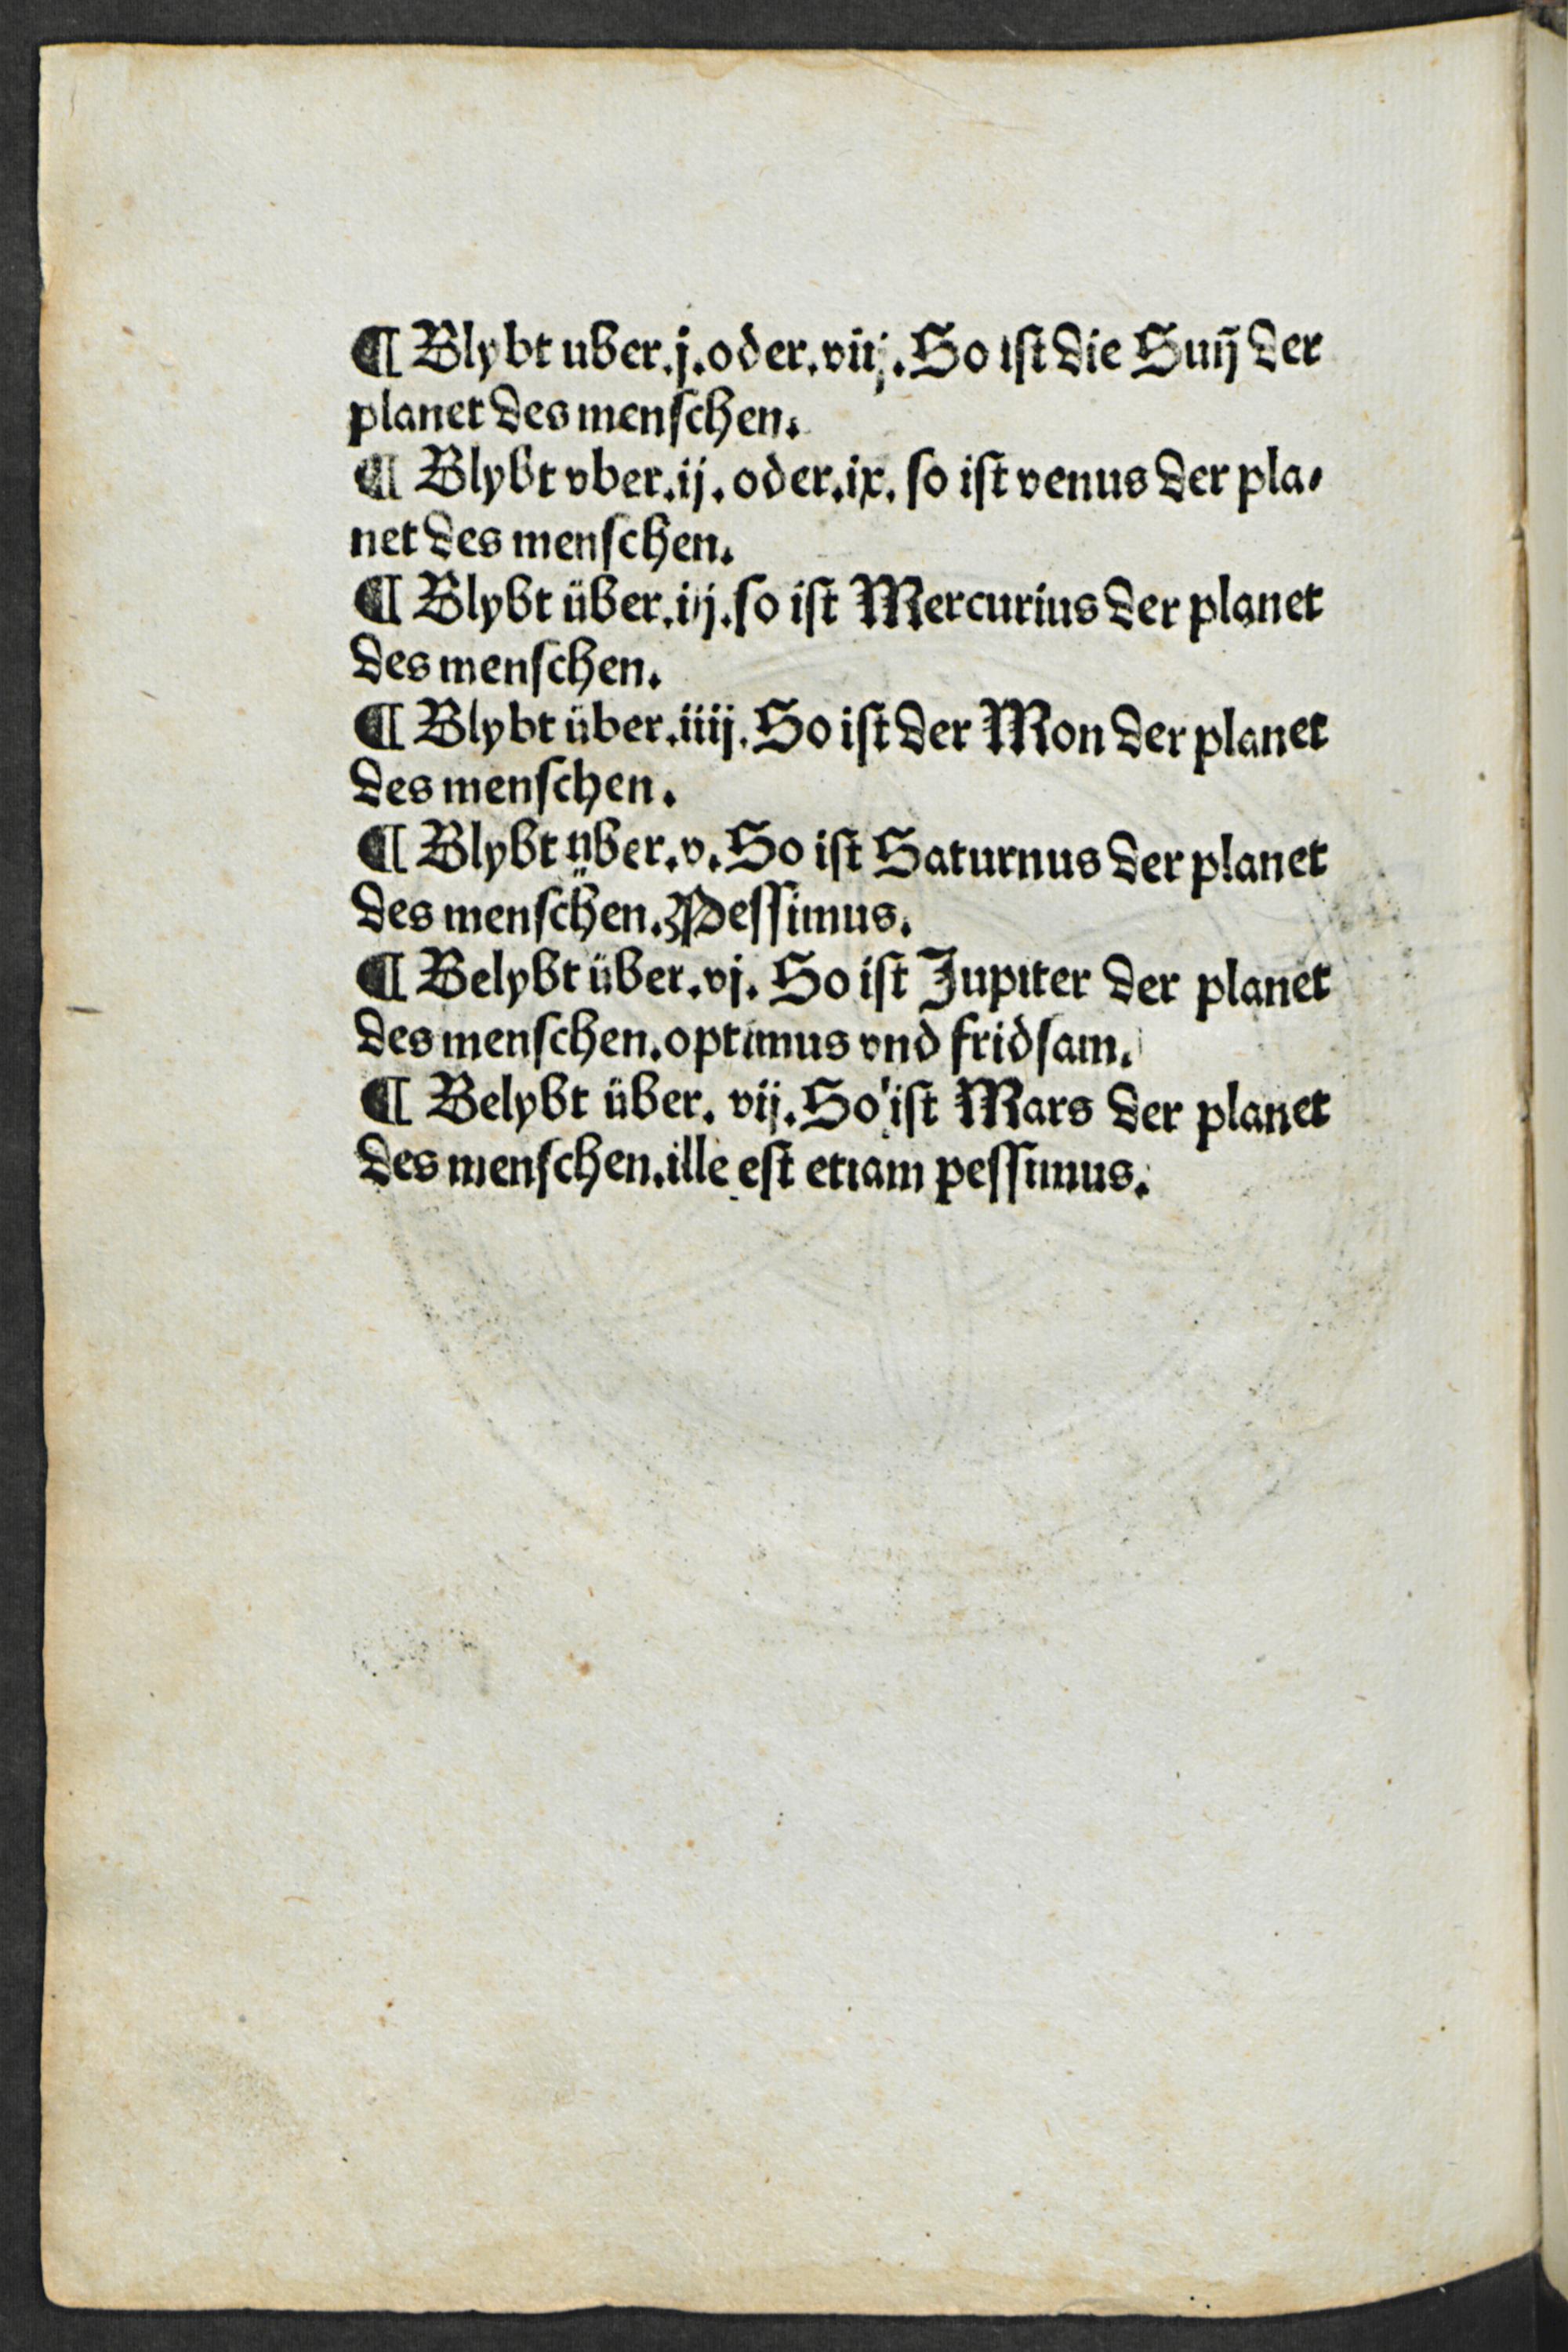 ¶ Blybt uber.j.oder.viij.So ist die Suñ der
planet des menschen.
¶ Blybt vber.ij.oder.ix. so ist venus der pla⸗
net des menschen.
¶ Blybt über.iij.so ist Mercurius der planet
des menschen.
¶ Blybt über.iiij.So ist der Mon der planet
des menschen.
¶ Blybt über.v.So ist Saturnus der planet
des menschen.Pessimus.
¶ Belybt über.vj. So ist Jupiter der planet
des menschen.optimus vnd fridsam.
¶ Belybt über. vij.So ist Mars der planet
des menschen.ille est etiam pessimus.